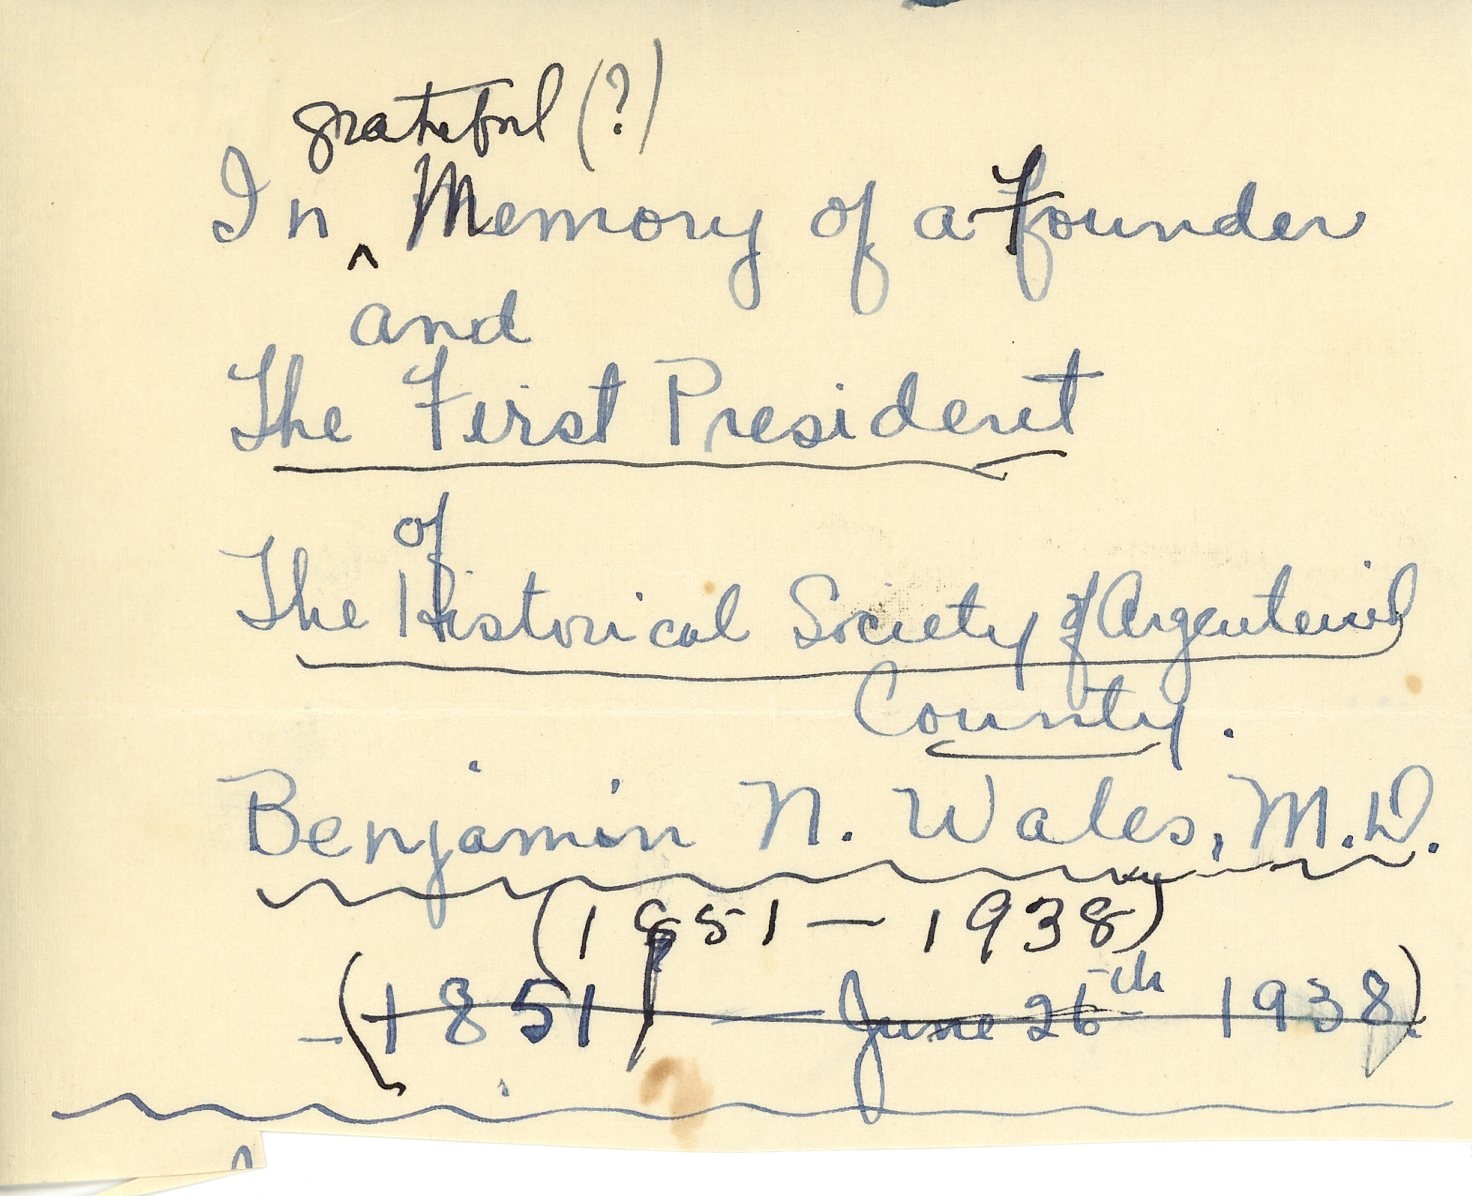 grateful (?)
In ^ Memory of a founder
and
The First President
of
The Historical Society of Argenteuil
County.
Benjamin N. Wales, M.D.
(1851 — 1938)
(1851 — June 26th 1938)